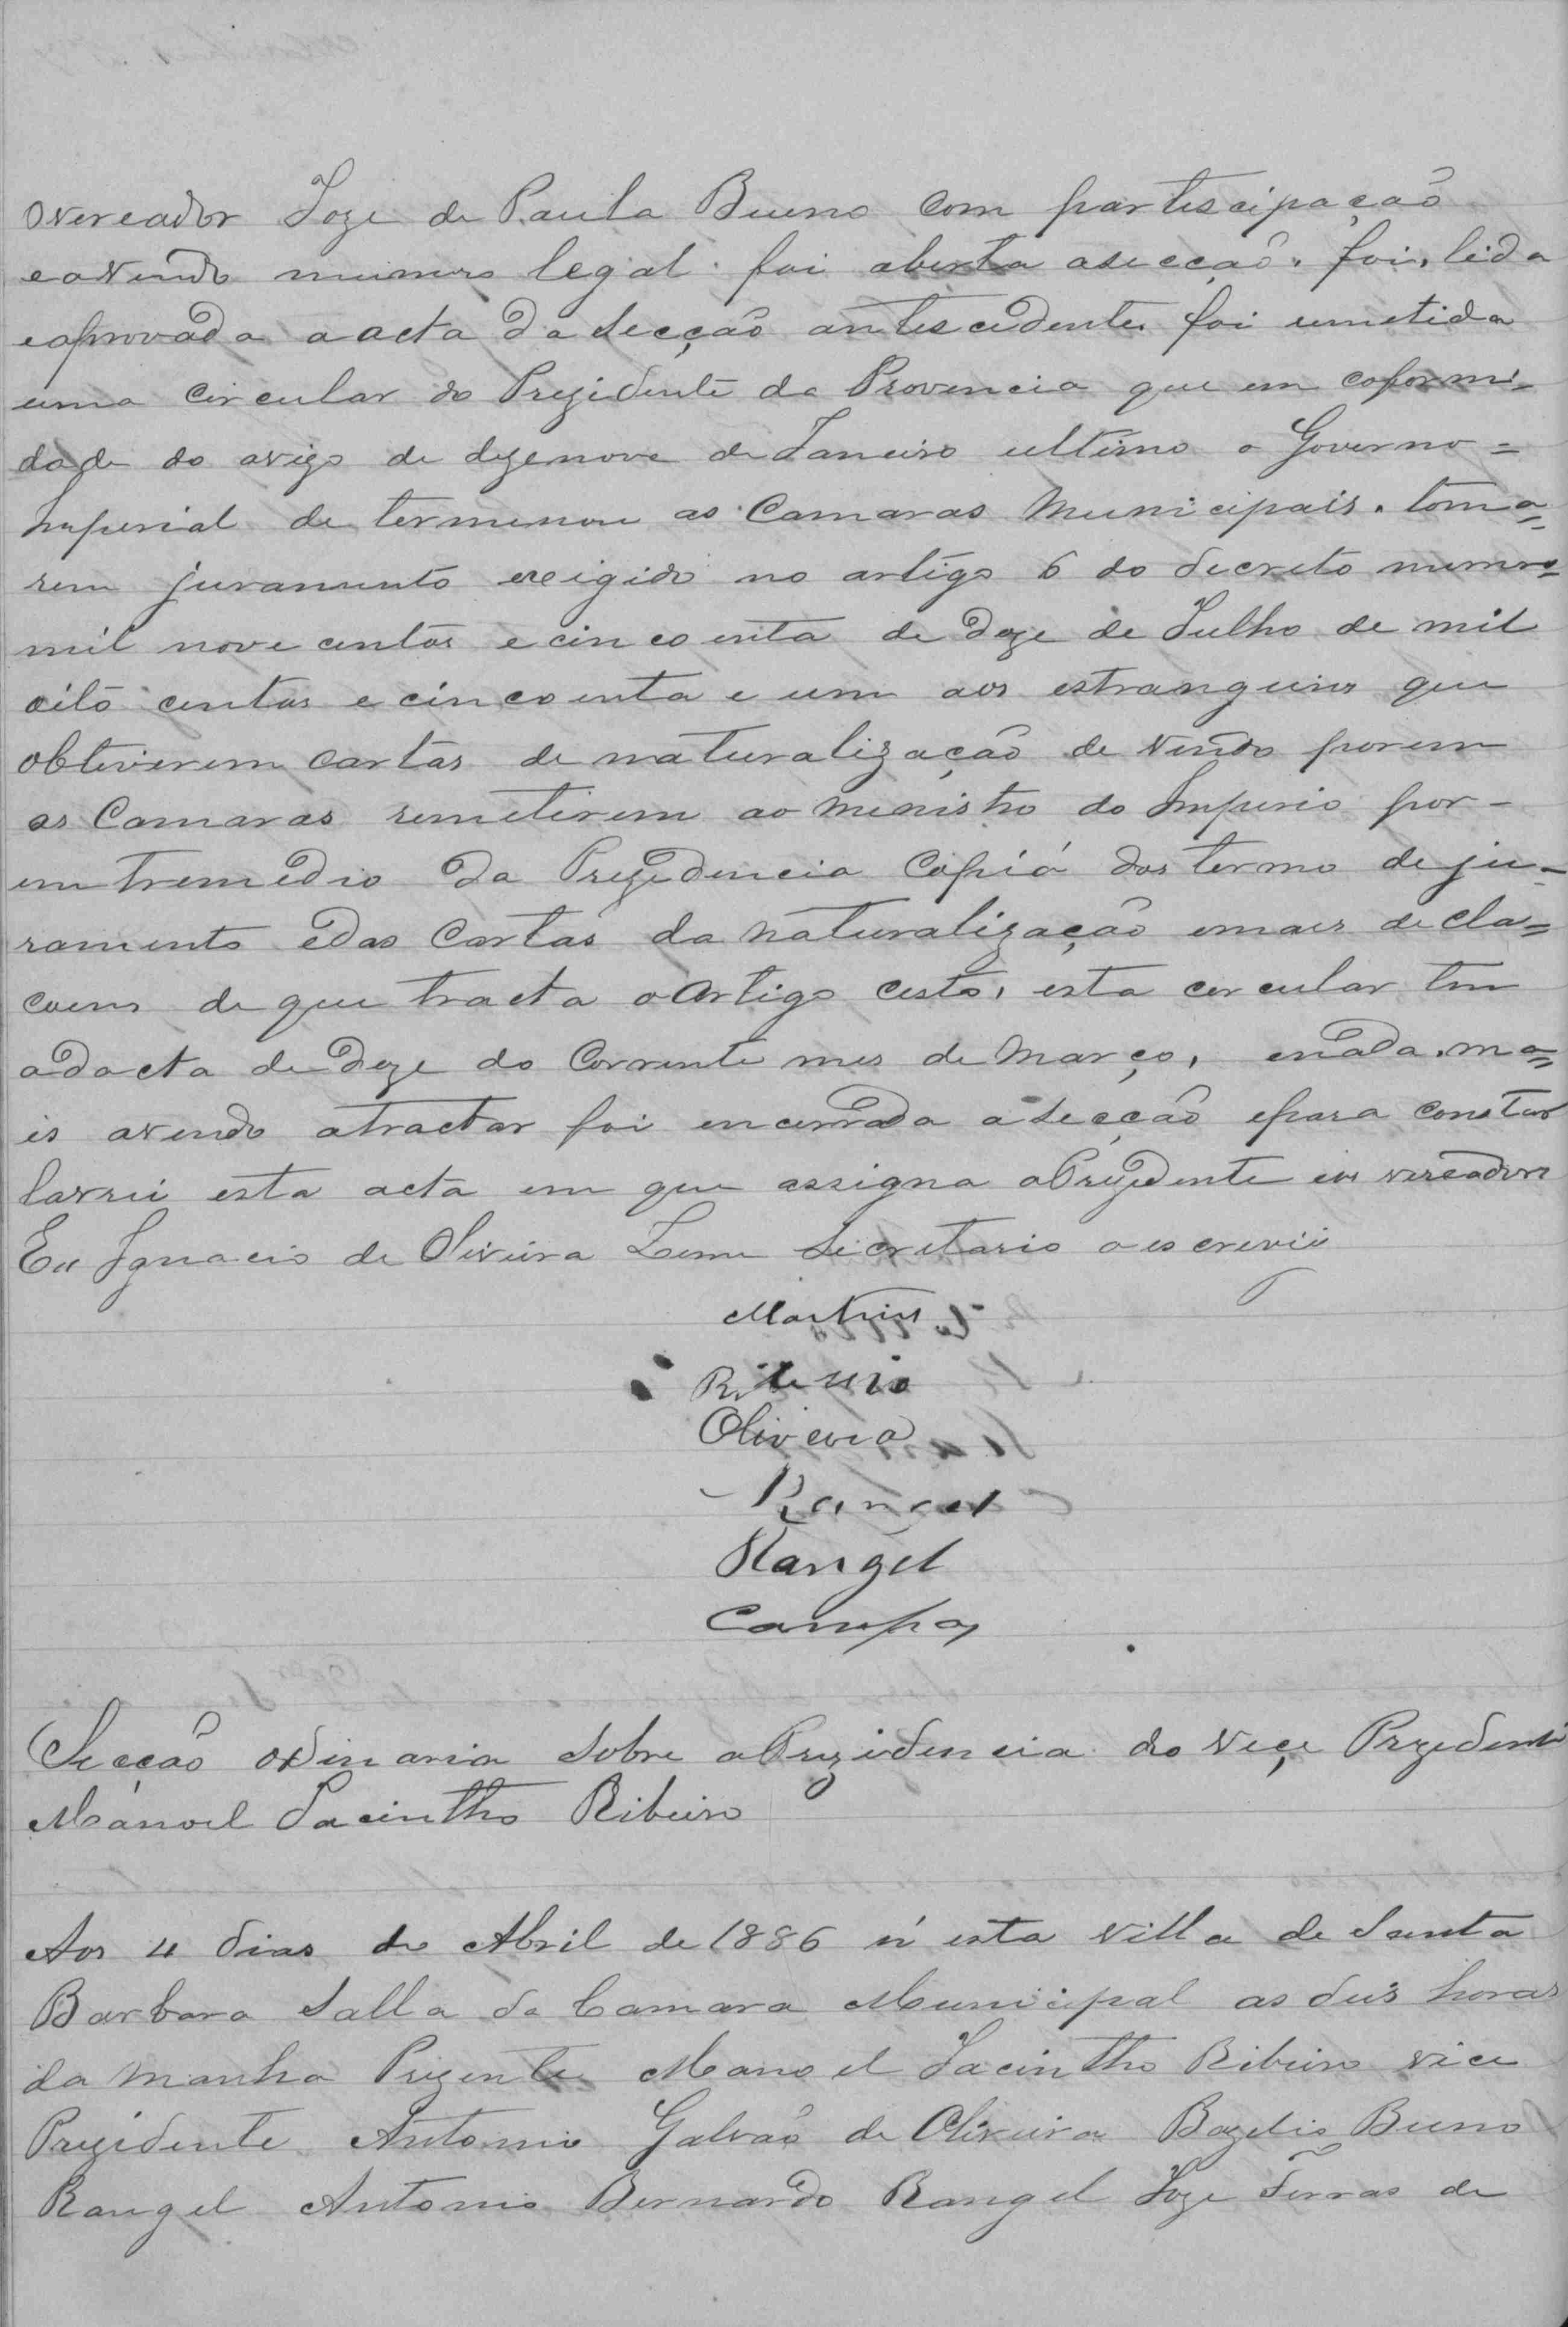 overeador Joze de Paula Bueno com partescipação
eavendo numero legal foi aberta asecção. foi, lida
eaprovada a acta da Secção antescedente foi remetida
uma Circular do Prezidente da Provencia que em coformi-
dade do avizo de dezenove de Janeiro ultimo o Governo=
Imperial de termenou as Camaras Municipais. toma=
rem juramento exigido no artigo 6 do decreto numero=
mil nove centos ecincoenta de doze de Julho de mil
oito centos e cincoenta e um aos estrangeiros que
obtiverem cartas de naturalização de vendo porem
as Camaras remetirem ao Menistro do Imperio por-
entremedio da Prezedencia Copiá dos termo de ju-
ramento edas Cartas da Naturalização emais decla=
coens de que tracta o artigo cesto, esta cercular tem
adacta de doze do Corrente mes de Março, enada. ma=
is avendo atractar foi encerrada aSecção epara constar
lavrei esta acta em que assigna oPrezedente eos vereadores
Eu Ignacio de Oliveira Leme Secretario o escrevii
Martins
Ribeiro
Oliveira
Rangel
Rangel
Campos
Secção ordinaria Sobre aPrezidencia do Veçe Prezedente
Manoel Jacintho Ribeiro
Aos 4 dias do Abril de 1886 n'esta Villa de Santa
Barbara Salla da Camara Municipal as deis horas
da manha Prezente Manoel Jacintho Ribeiro vice
Prezidente Antonio Galvão de Oliveira Bazilio Bueno
Rangel Antonio Bernardo Rangel Joze Ferras de